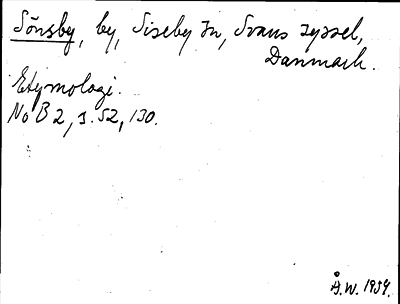 Sönsby, by, Siseby sn, Svans syssel,
Danmark.
Etymologi.
NoB 2, s. 52, 130.
Å.W. 1934.